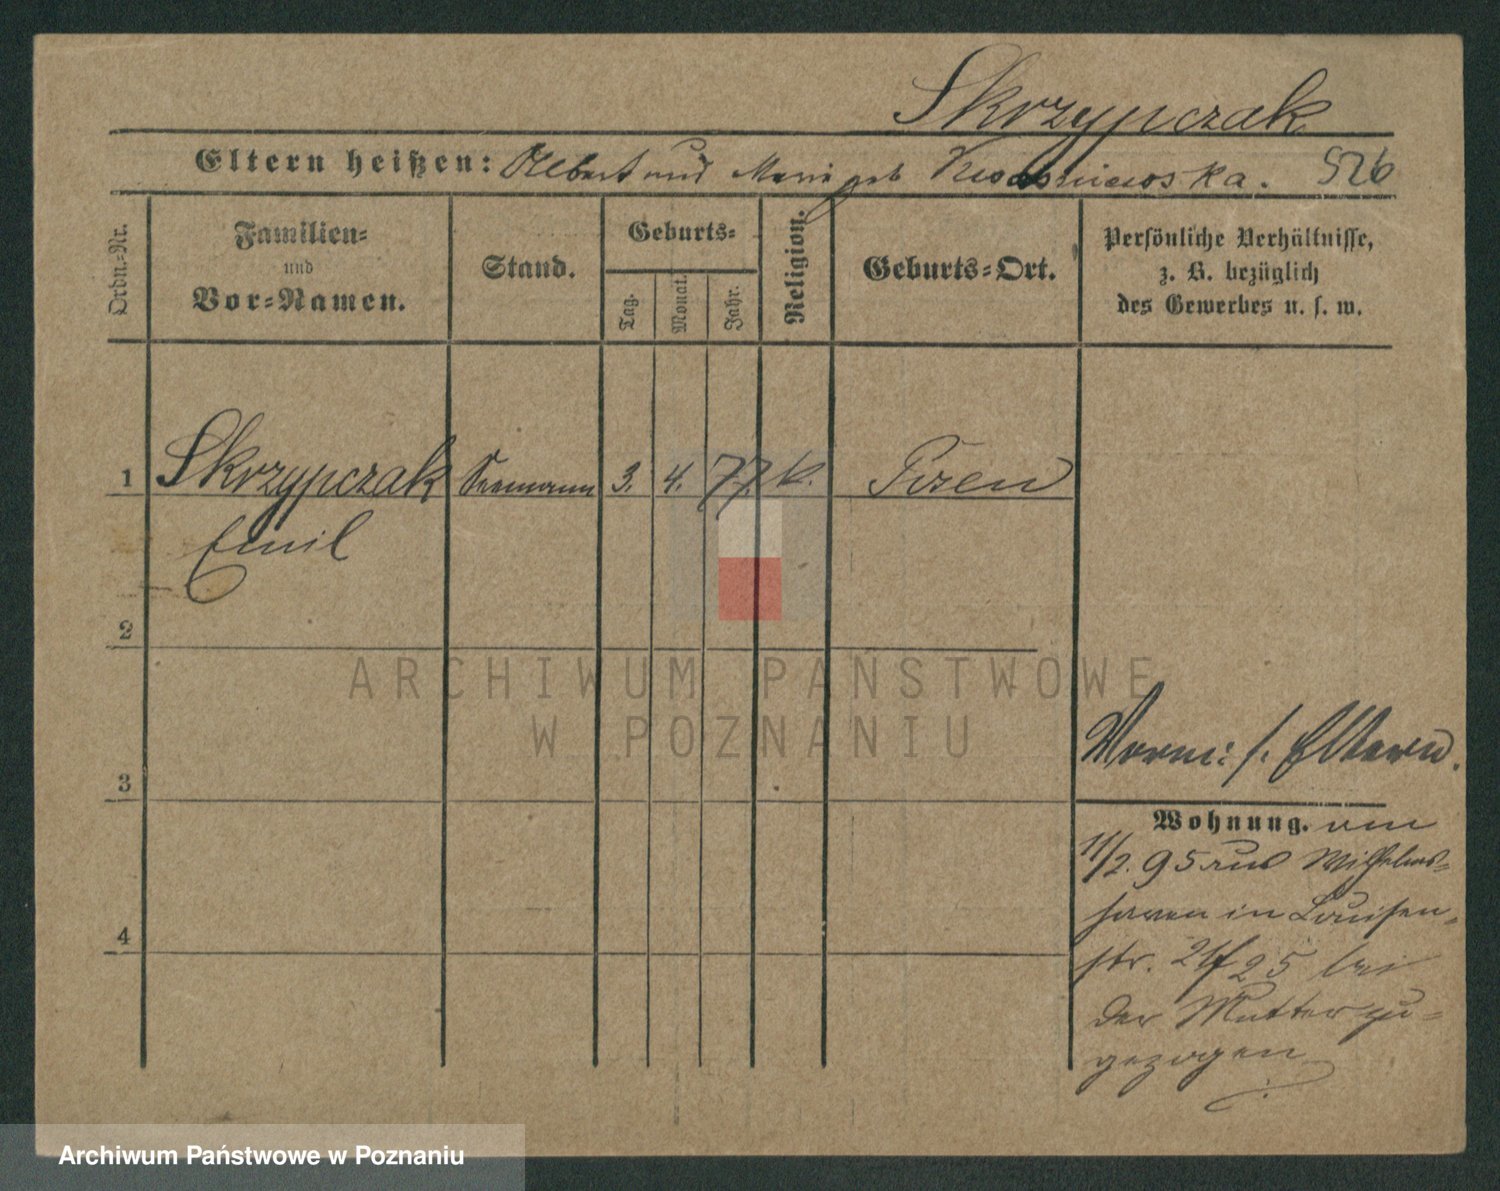 Skrzypczak
Eltern heißen: Albert und Marie geb 526
Ordn.-Nr.
Familien-
und
Vor-Namen.
Stand.
Geburts-
Tag.
Monat.
Jahr.
Religion.
Geburts-Ort.
Persönliche Verhältnisse,
z. B. bezüglich
des Gewerbes u. s. w.
1 Skrzypczak Seemann 3. 4. 77. k.
Emil
2
ARCHIWUM PAŃSTWOWE
W POZNANIU
Vorm: s. Eltern.
3
Wohnung. am
11/2. 95 aus Wilhelms-
haven in Louisen-
4
str. 25 bei
der Mutter zu-
gezogen
Archiwum Państwowe w Poznaniu